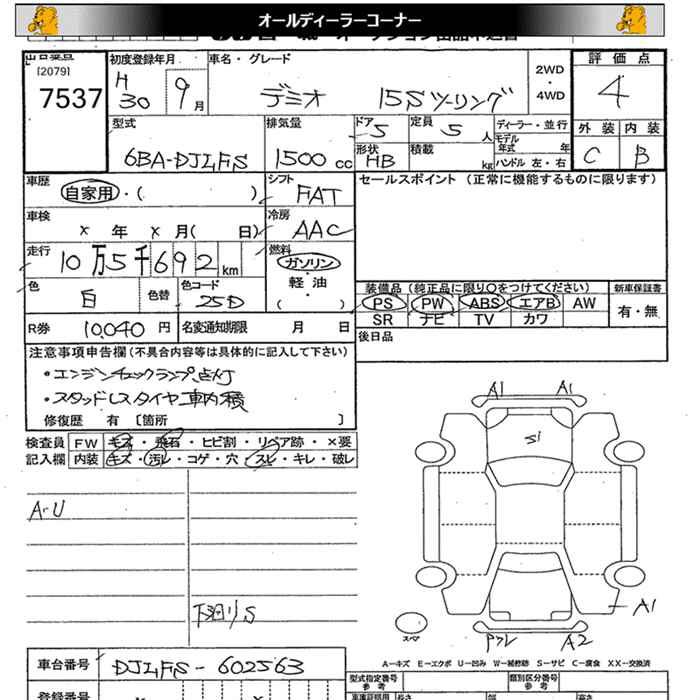 オールディーラーコーナー
出品番号
[2079]
7537
初度登録年月
H
30
9月
車名・グレード
デミオ 15Sツーリング
2WD
・
4WD
評価点
4
外装 内装
C B
型式
6BA-DJLFS
排気量
1500 cc
ドア 5
形状 HB
定員 5 人
積載 kg
ディーラー・並行
モデル年式 年
ハンドル 左・右
車歴
自家用・( )
シフト
FAT
車検
× 年 × 月( 日)
冷房
AAC
走行
10万5千692km
燃料
ガソリン
・
軽油
・
( )
色
白
色替
色コード
25D
R券 10,040 円
名変通知期限 月 日
セールスポイント (正常に機能するものに限ります)
装備品 (純正品に限り○をつけてください)
PS PW ABS エアB AW
SR ナビ TV カワ
新車保証書
有・無
後日品
注意事項申告欄(不具合内容等は具体的に記入して下さい)
・エンジンチェックランプ点灯
・スタッドレスタイヤ車内積
修復歴 有 〔箇所 〕
検査員記入欄
FW キズ・飛石・ヒビ割・リペア跡・×要
内装 キズ・汚レ・コゲ・穴・スレ・キレ・破レ
A・U
下廻りS
A1 A1
S1
A1
スペア
A2
A-キズ E-エクボ U-凹み W-補修跡 S-サビ C-腐食 XX-交換済
車台番号 DJLFS-602563
登録番号
型式指定番号
参考
類別区分番号
参考